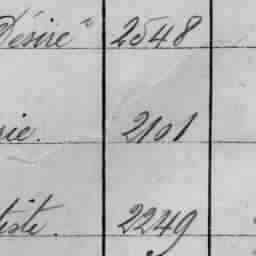 Désiré 2548
rie. 2101
tiste. 2249